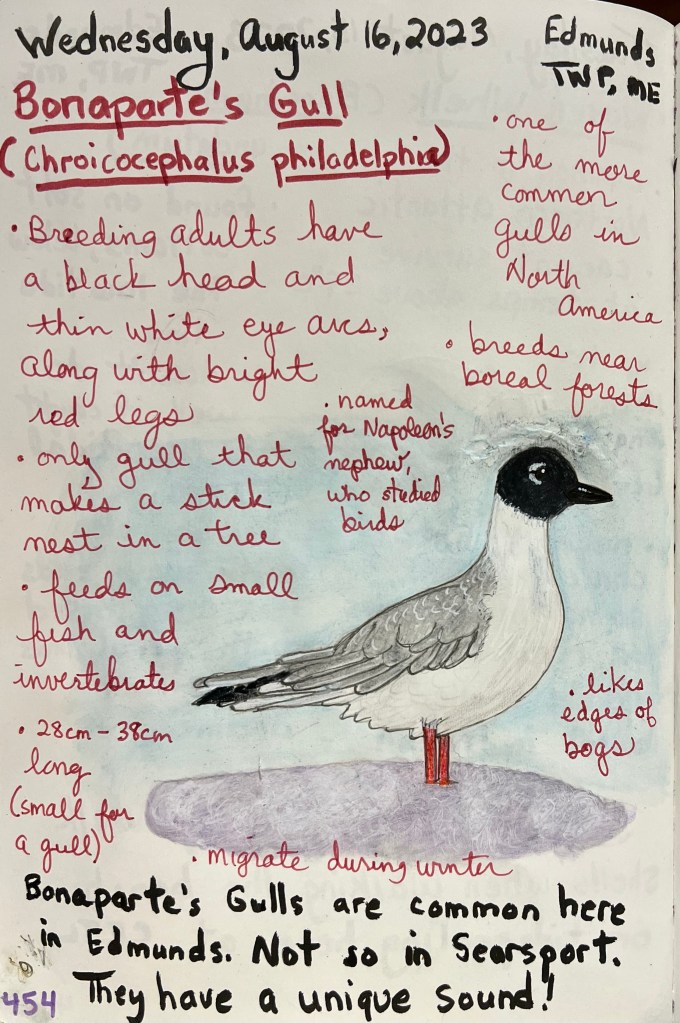 Wednesday, August 16, 2023
Edmunds
TWP, ME
Bonaparte's Gull
(Chroicocephalus philadelphia)
• Breeding adults have
a black head and
thin white eye arcs,
along with bright
red legs
• only gull that
makes a stick
nest in a tree
• feeds on small
fish and
invertebrates
• 28cm - 38cm
long
(small for
a gull)
• one of
the more
common
gulls in
North
America
• breeds near
boreal forests
• named
for Napoleon's
nephew,
who studied
birds
• likes
edges of
bogs
• migrate during winter
Bonaparte's Gulls are common here
in Edmunds. Not so in Searsport.
They have a unique sound!
454